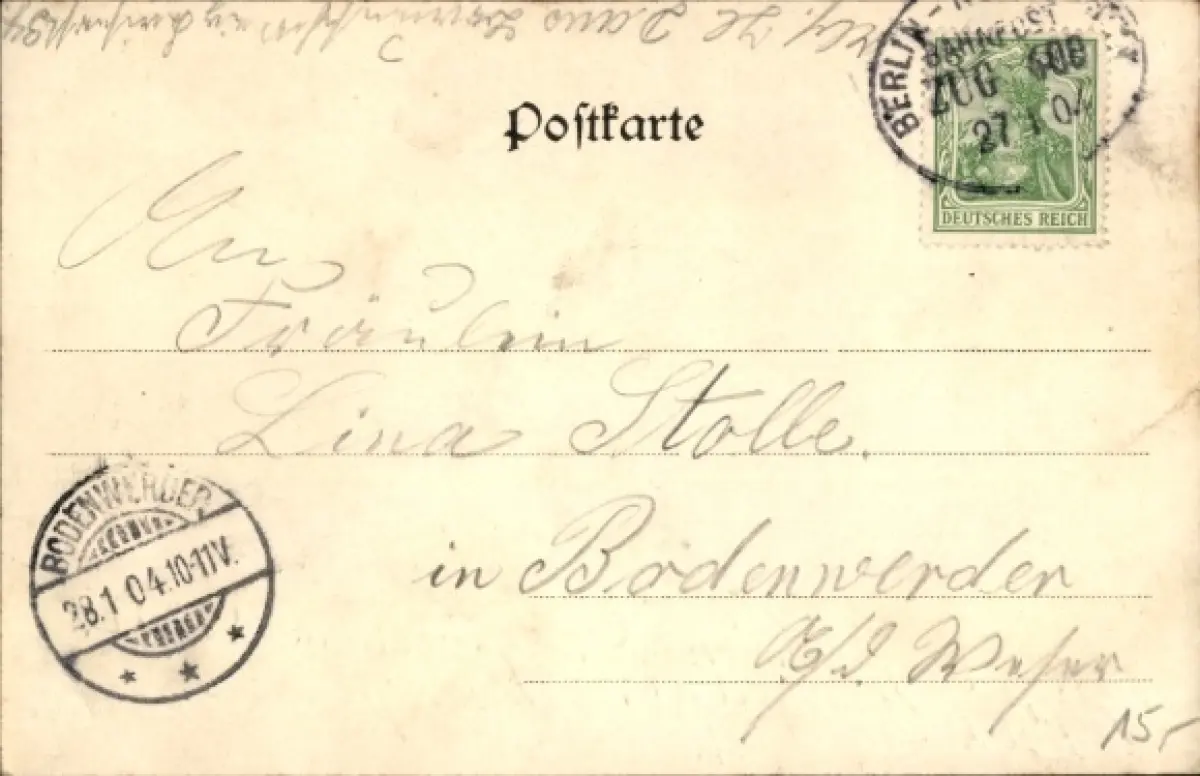 BERLIN
BAHNPOST
ZUG 600
27 1 04
Postkarte
DEUTSCHES REICH
An
Fräulein
Lina Stolle.
in Bodenwerder
a/d. Weser
BODENWERDER
28.1 04.10-11V.
15,-